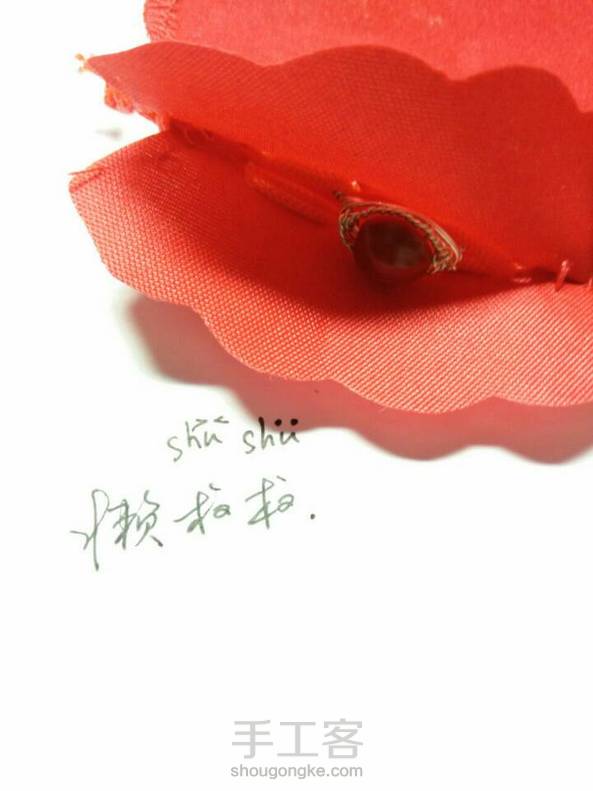 shü shü
懒叔叔.
手工客
shougongke.com